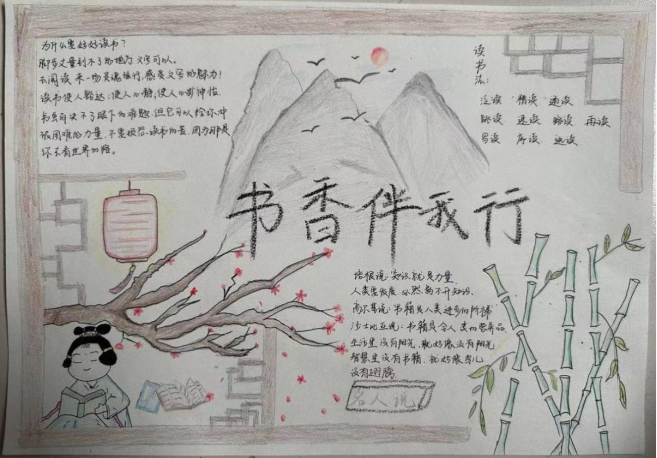 为什么要好好读书？
脚步丈量不了的地方，文字可以。
去阅读，来一场灵魂旅行，感受文字的魅力！
读书使人豁达，使人心静，使人心
书籍解决不了眼下的难题，但它可以给你冲
破困难的力量，不要抱怨读书的苦，因为那是
你去看世界的路。
书香伴我行
读书法：
泛读 精读 通读
跳读 速读 略读 再读
写读 序读 选读
培根说：知识就是力量
人类要发展，必然离不开知识。
高尔基说：书籍是人类进步的阶梯
莎士比亚说：书籍是全人类的营养品
生活里没有书籍，就好像没有阳光，
智慧里没有书籍，就好像鸟儿
没有翅膀
名人说